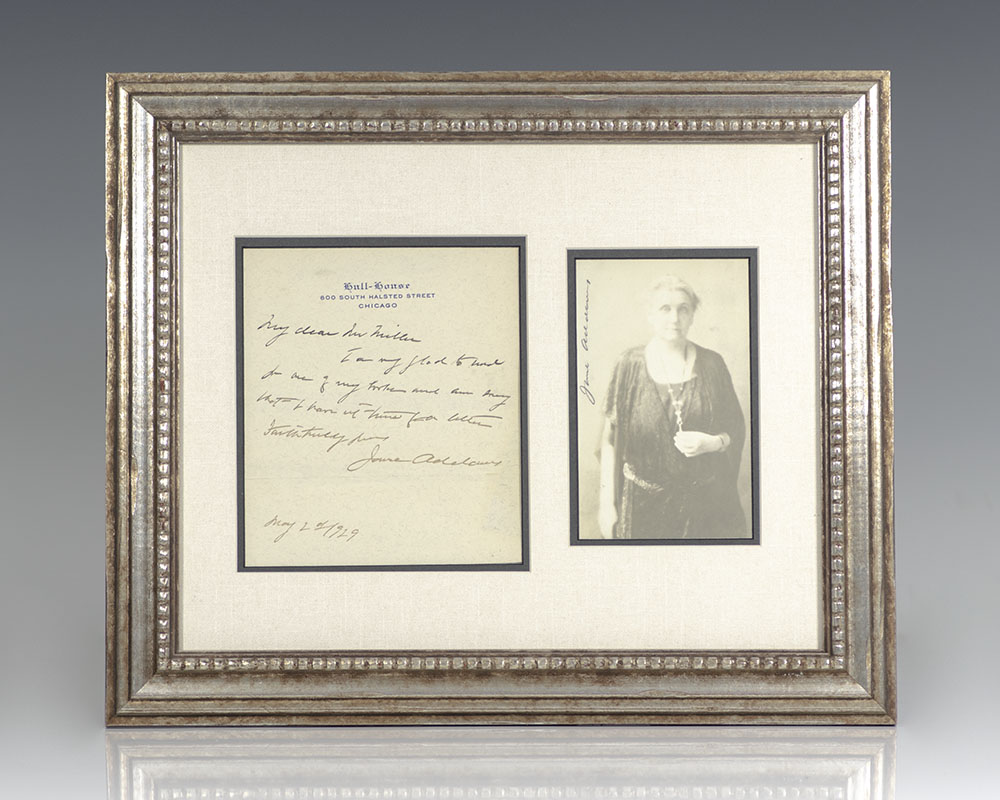 Hull-House
800 SOUTH HALSTED STREET
CHICAGO
My dear Mr Miller
I am very glad to send
you one of my books and am sorry
that I have not time for a letter
Faithfully yours
Jane Addams
May 2d 1929
Jane Addams